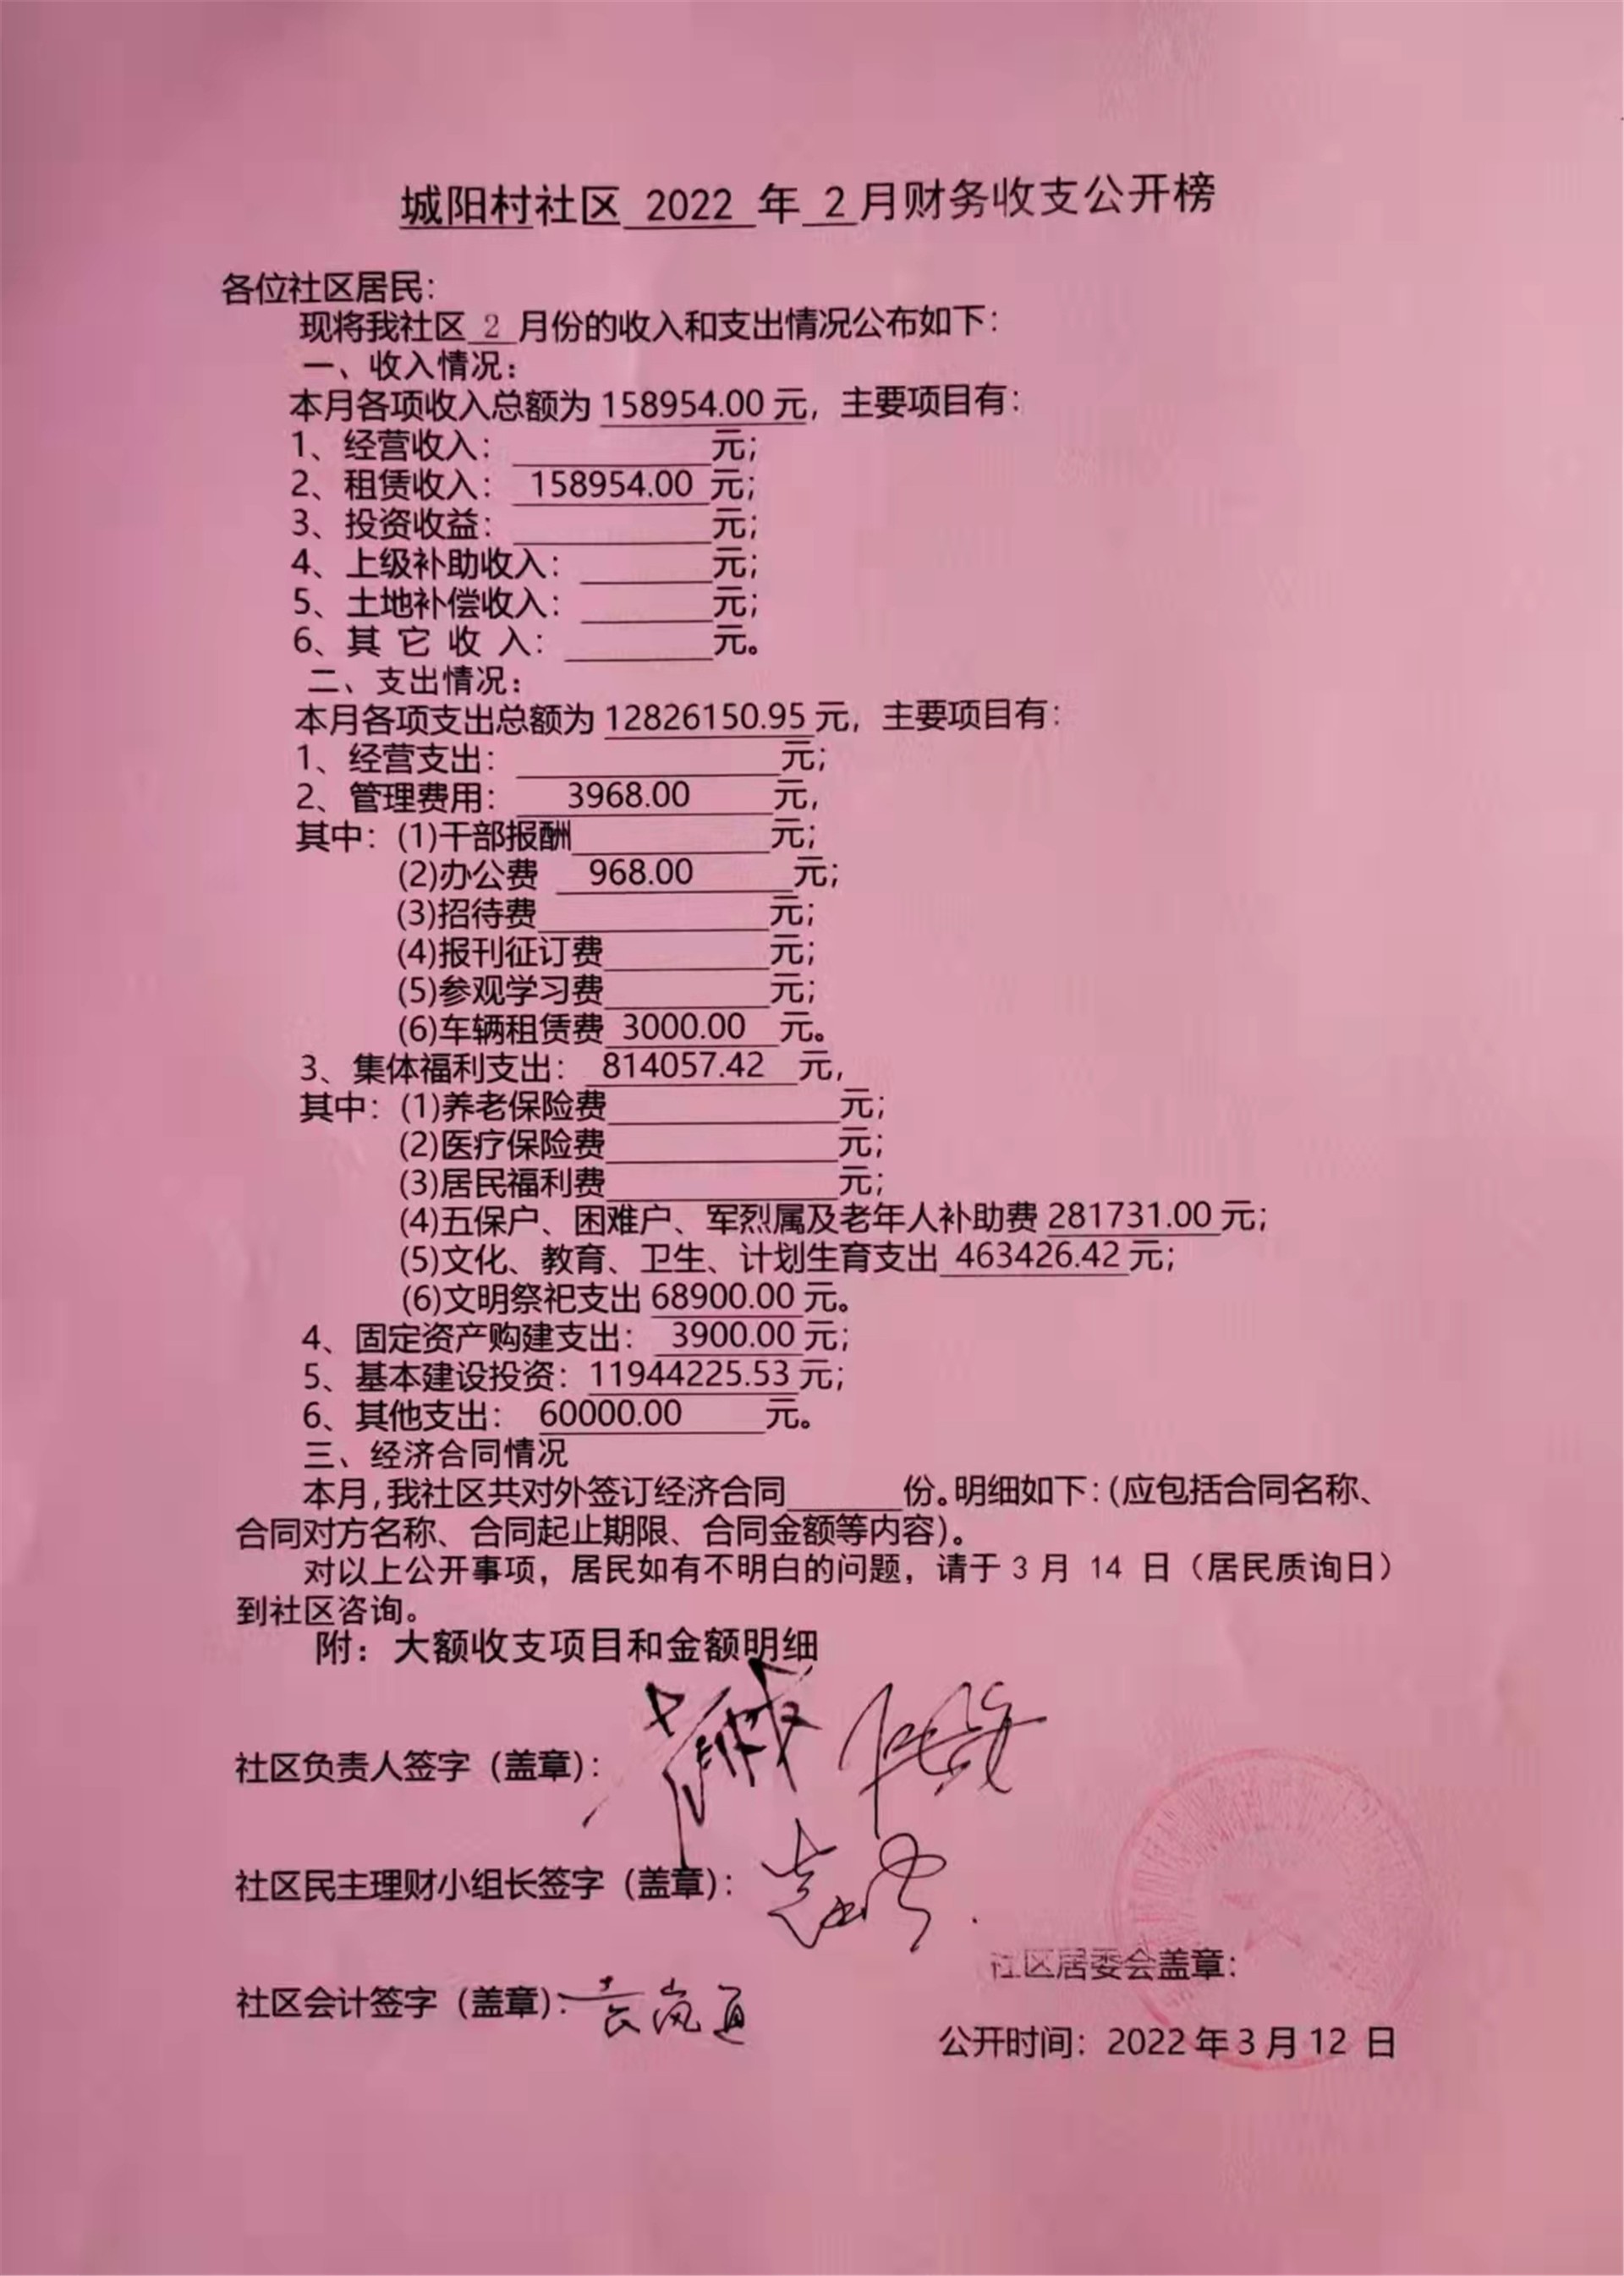 城阳村社区 2022 年 2 月财务收支公开榜
各位社区居民：
现将我社区 2 月份的收入和支出情况公布如下：
一、收入情况：
本月各项收入总额为 158954.00 元，主要项目有：
1、经营收入：________元；
2、租赁收入： 158954.00 元；
3、投资收益：________元；
4、上级补助收入：______元；
5、土地补偿收入：______元；
6、其 它 收 入：______元。
二、支出情况：
本月各项支出总额为 12826150.95 元，主要项目有：
1、经营支出：__________元；
2、管理费用： 3968.00 元，
其中：(1)干部报酬________元；
(2)办公费 968.00 元；
(3)招待费________元；
(4)报刊征订费______元；
(5)参观学习费______元；
(6)车辆租赁费 3000.00 元。
3、集体福利支出： 814057.42 元，
其中：(1)养老保险费________元；
(2)医疗保险费________元；
(3)居民福利费________元；
(4)五保户、困难户、军烈属及老年人补助费 281731.00 元；
(5)文化、教育、卫生、计划生育支出 463426.42 元；
(6)文明祭祀支出 68900.00 元。
4、固定资产购建支出： 3900.00 元；
5、基本建设投资：11944225.53 元；
6、其他支出： 60000.00 元。
三、经济合同情况
本月，我社区共对外签订经济合同______份。明细如下：（应包括合同名称、
合同对方名称、合同起止期限、合同金额等内容）。
对以上公开事项，居民如有不明白的问题，请于 3 月 14 日（居民质询日）
到社区咨询。
附：大额收支项目和金额明细
社区负责人签字（盖章）：
社区民主理财小组长签字（盖章）：
社区居委会盖章：
社区会计签字（盖章）：
公开时间：2022 年 3 月 12 日